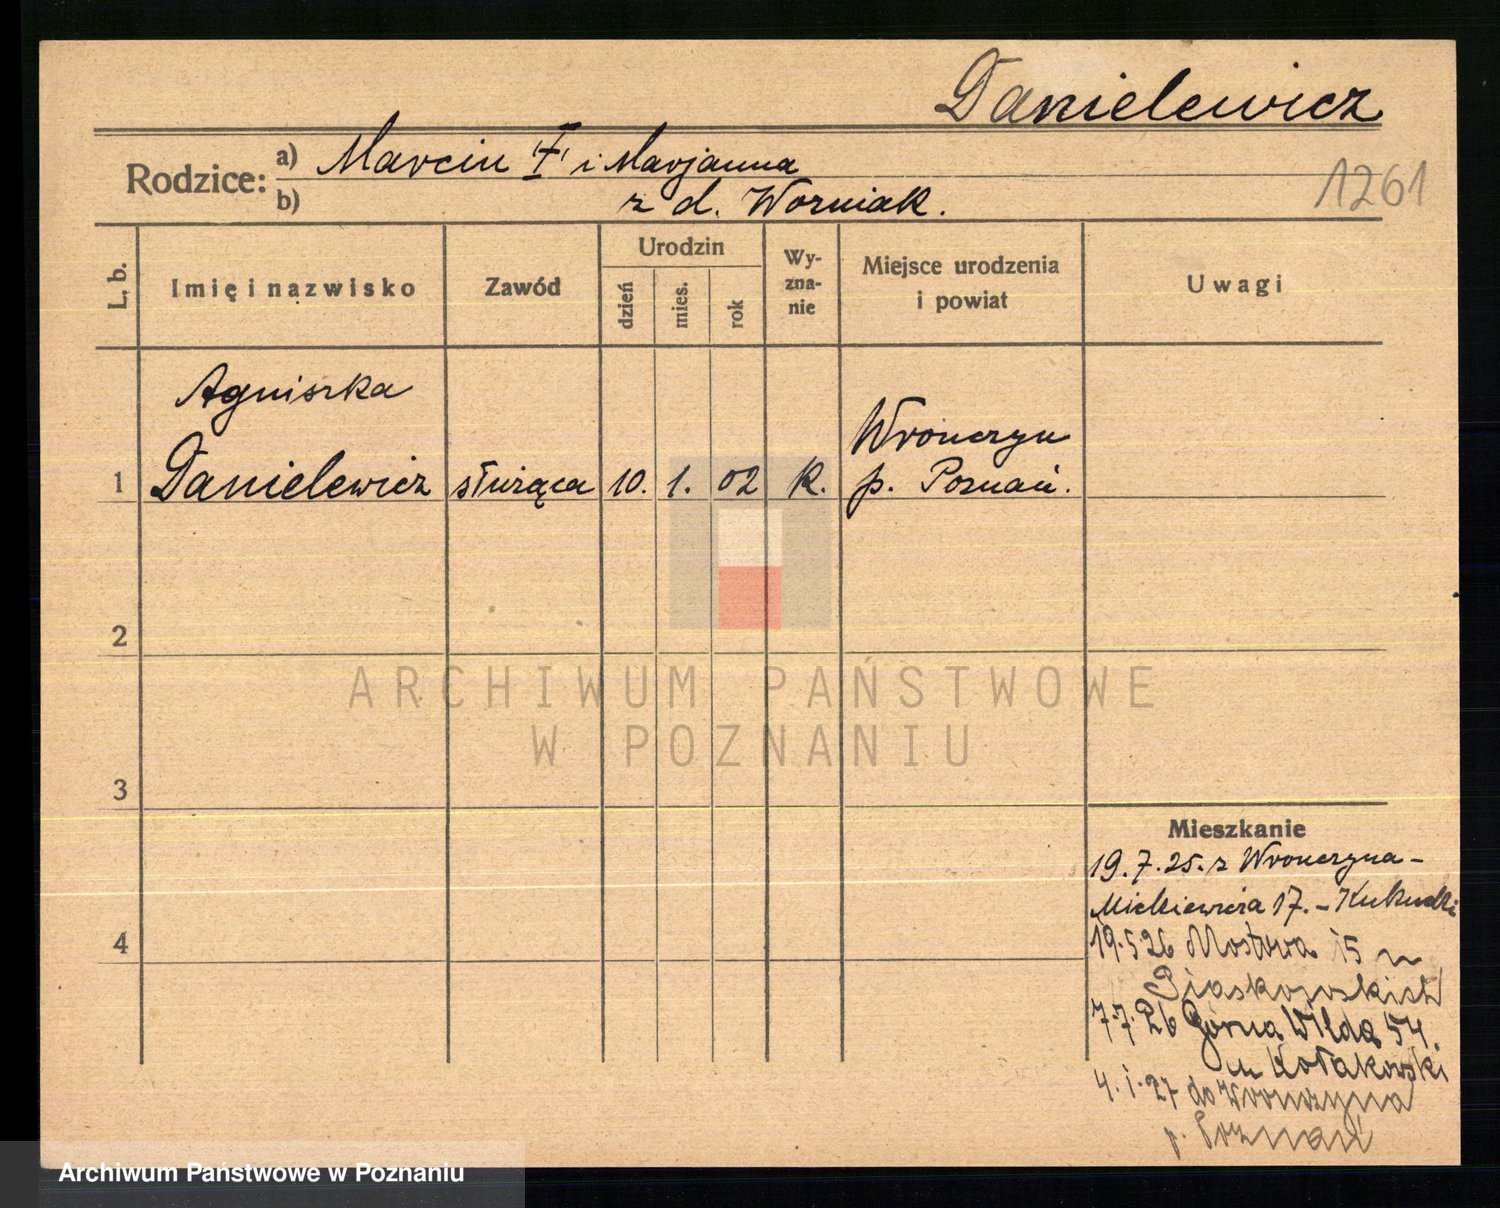 Danielewicz
Rodzice: a) Marcin "F" i Marjanna
b) z d. Wozniak.
1261
L. b.
Imię i nazwisko
Zawód
Urodzin
dzień
mies.
rok
Wy-
zna-
nie
Miejsce urodzenia
i powiat
Uwagi
Agniszka
1 Danielewicz służąca 10. 1. 02 K.
Wronczyn
p. Poznań.
2
ARCHIWUM PAŃSTWOWE
W POZNANIU
3
4
Mieszkanie
19.7.25. z Wronczyna -
Mickiewicza 17. -
19.5 26 Mostowa 15 u
Piaskowskich
7.7.26 Górna Wilda 54.
u Kołakowski
4.1.27 do Wronczyna
p. Poznań
Archiwum Państwowe w Poznaniu